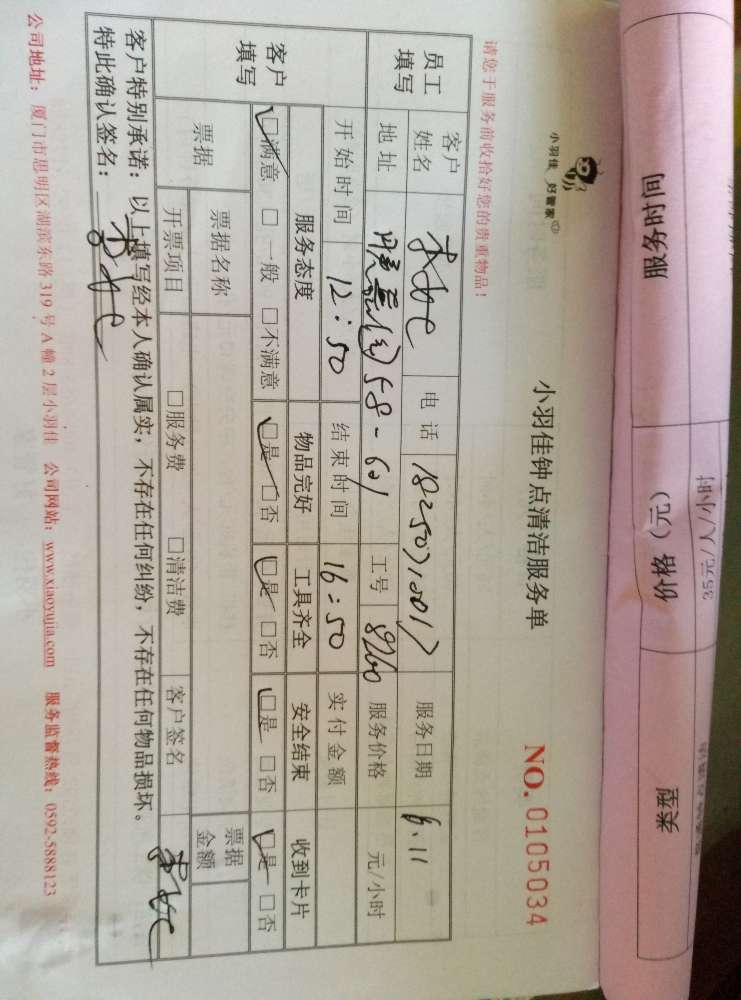 服务时间 价格（元） 类型
35元/人/小时
小羽佳 好管家
小羽佳钟点清洁服务单
NO. 0105034
请您于服务前收拾好您的贵重物品！
员工填写
客户姓名 电话 服务日期 6.11
地址 58-601 工号 8260 服务价格 元/小时
开始时间 12:50 结束时间 16:50 实付金额
客户填写
服务态度 物品完好 工具齐全 安全结束 收到卡片
☑满意 □一般 □不满意 ☑是 □否 ☑是 □否 ☑是 □否 ☑是 □否
票据 票据名称 票据金额
开票项目 □服务费 □清洁费 客户签名
客户特别承诺：以上填写经本人确认属实，不存在任何纠纷，不存在任何物品损坏。
特此确认签名：
公司地址：厦门市思明区湖滨东路 319 号 A 幢 2 层小羽佳 公司网站：www.xiaoyujia.com 服务监督热线：0592-5888123